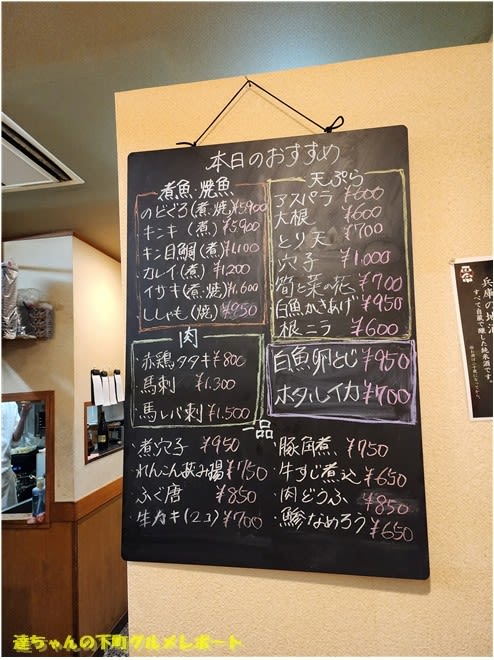 本日のおすすめ
煮魚・焼魚
のどぐろ(煮・焼)¥5,900
キンキ(煮)¥5,900
キン目鯛(煮)¥1,100
カレイ(煮)¥1,200
イサキ(煮・焼)¥1,600
ししゃも(焼)¥950
天ぷら
アスパラ ¥600
大根 ¥600
とり天 ¥700
穴子 ¥1,000
筍と菜の花 ¥700
白魚かきあげ ¥950
根ニラ ¥600
肉
・赤鶏タタキ ¥800
・馬刺 ¥1,300
・馬レバ刺 ¥1,500
白魚卵とじ ¥950
ホタルイカ ¥700
一品
・煮穴子 ¥950
・れんこん挟み揚 ¥750
・ふぐ唐 ¥850
・生カキ(2コ) ¥700
・豚角煮 ¥750
・牛すじ煮込 ¥650
・肉どうふ ¥850
・鯵なめろう ¥650
兵庫の地酒
すべて自蔵で醸した純米酒です。
達ちゃんの下町グルメレポート